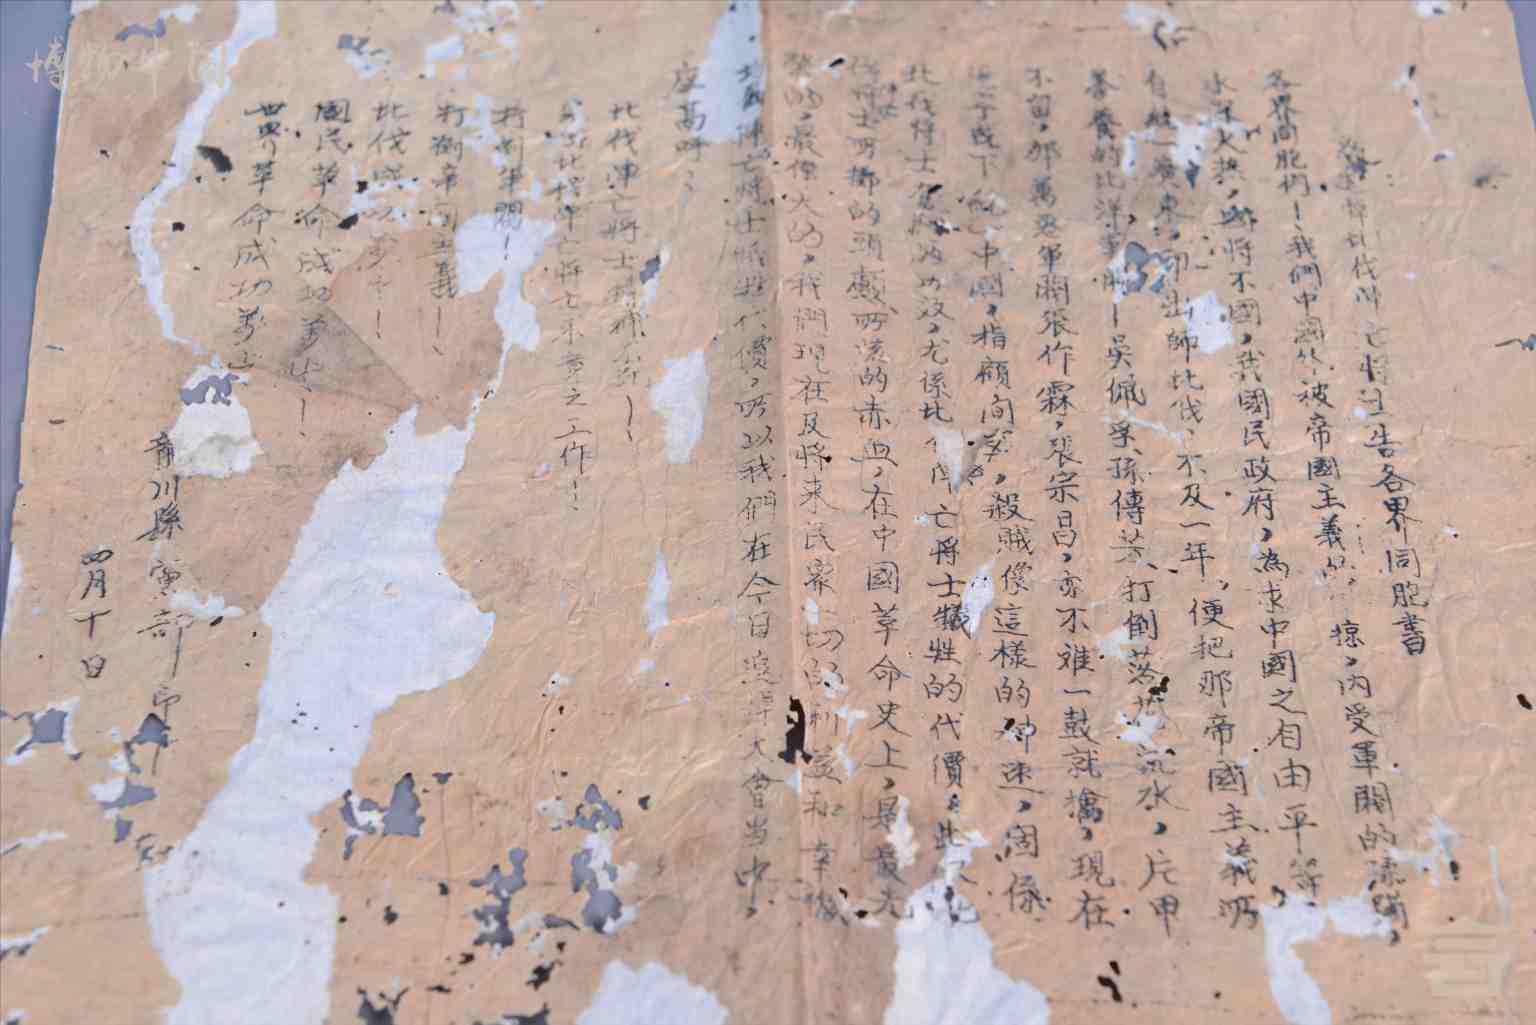 北伐陣亡將士告各界同胞書
各界同胞們！我們中國外被帝國主義 掠，內受軍閥的蹂躪，
水深火热，將不國，我國民政府，為求中國之自由平等，
自 廣東，即出師北伐，不及一年，便把那帝國主義所
豢養的北洋軍閥！吳佩孚、孫傳芳、打倒落 流水，片甲
不留，那萬惡軍閥張作霖，張宗昌，亦不难一鼓就擒，現在
下 中國，指顧间 ，殺賊像這樣的神速，固係
北伐將士 功 ，尤係北伐陣亡將士犧牲的代價，此
將士所擲的頭顱所 的赤血，在中國革命史上，是最光
榮的，最偉大的，我們現在及將来民眾一切的利益和幸福
陣亡將士犧牲代價，所以我們在今日追悼大會当中，
應高呼：
北伐陣亡將士精神不死！
陣亡將士未竟之工作！
打倒軍閥！
打倒帝國主義！
北伐成功萬 ！
國民革命成功萬岁！
世界革命成功萬岁
縣黨部印
四月十日
博物中国